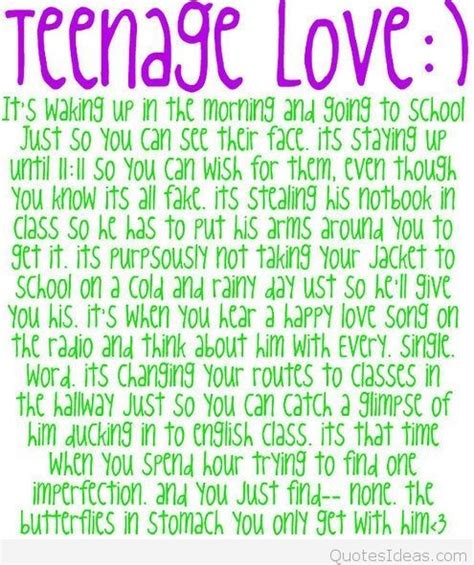 Teenage Love:)
It's waking up in the morning and going to school
Just so you can see their face. its staying up
until 11:11 so you can wish for them, even though
you know its all fake. its stealing his notbook in
class so he has to put his arms around you to
get it. its purpsously not taking your jacket to
school on a cold and rainy day ust so he'll give
you his. it's when you hear a happy love song on
the radio and think about him with every. single.
word. its changing your routes to classes in
the hallway just so you can catch a glimpse of
him ducking in to english class. its that time
when you spend hour trying to find one
imperfection. and you just find-- none. the
butterflies in stomach you only get with him<3
QuotesIdeas.com